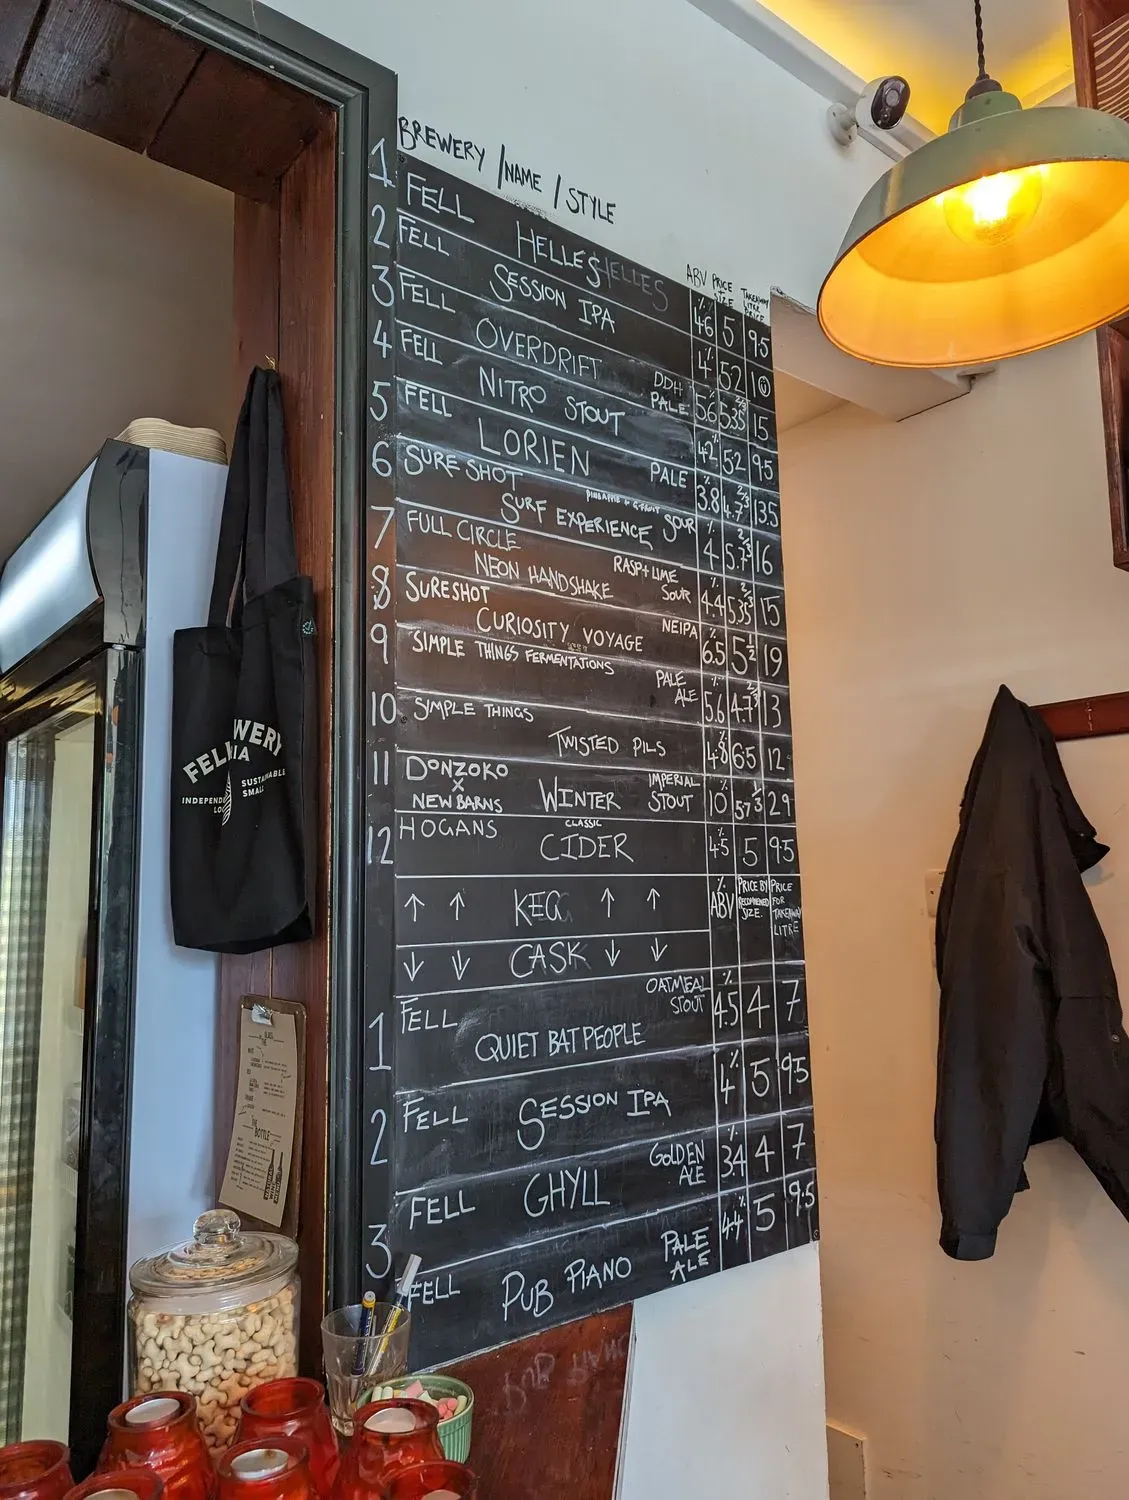 BREWERY / NAME / STYLE
ABV PRICE TAKEAWAY
1 FELL HELLES HELLES 4.6% 5 9.5
2 FELL SESSION IPA 4% 52 10
3 FELL OVERDRIFT DDH PALE 5.6 5.35 2/3 15
4 FELL NITRO STOUT 42% 52 9.5
5 FELL LORIEN PALE 3.8% 4.7 2/3 13.5
6 SURE SHOT
SURF EXPERIENCE SOUR 4% 5.7 2/3 16
7 FULL CIRCLE
NEON HANDSHAKE RASP+LIME SOUR 4.4% 535 2/3 15
8 SURESHOT
CURIOSITY VOYAGE NEIPA 6.5% 5 1/2 19
9 SIMPLE THINGS FERMENTATIONS
PALE ALE 5.6% 4.7 2/3 13
10 SIMPLE THINGS
TWISTED PILS 4.8% 65 12
11 DONZOKO X NEW BARNS WINTER IMPERIAL STOUT 10% 57 1/3 29
12 HOGANS CLASSIC CIDER 4.5% 5 9.5
↑ ↑ KEG ↑ ↑ % ABV PRICE BY RECOMMENDED SIZE. PRICE FOR TAKEAWAY LITRE
↓ ↓ CASK ↓ ↓
1 FELL QUIET BAT PEOPLE OATMEAL STOUT 4.5% 4 7
2 FELL SESSION IPA 4% 5 9.5
FELL GHYLL GOLDEN ALE 3.4% 4 7
3 FELL PUB PIANO PALE ALE 4.4% 5 9.5
FELL
WERY
IA
INDEPEND
LO
SUSTAINABLE
SMALL
THE
BOTTLE